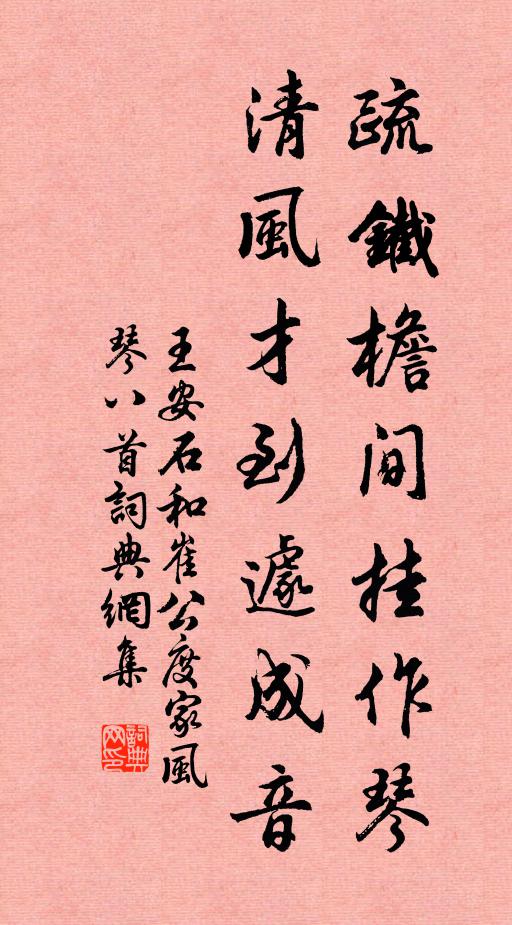 疏鐵檐間挂作琴
清風才到遽成音
王安石和崔公度家風
琴八首詞典網集
詞典
网印